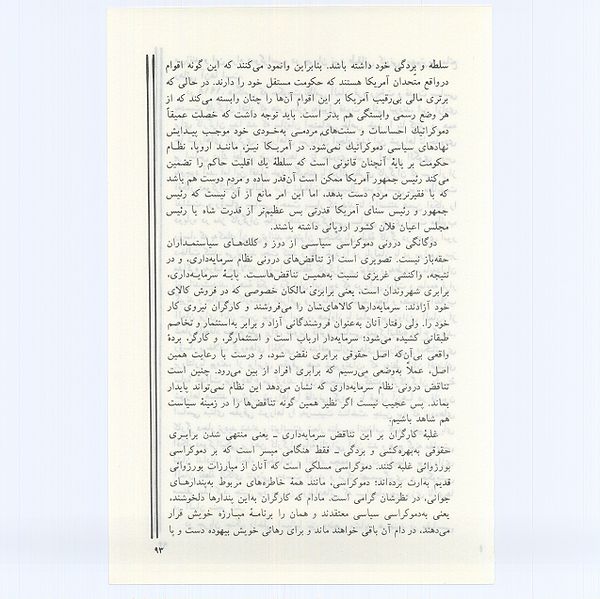 سلطه و بردگی خود داشته باشد. بنابراین وانمود می‌کنند که این گونه اقوام
درواقع متّحدان آمریکا هستند که حکومت مستقل خود را دارند. در حالی که
برتری مالی بی‌رقیب آمریکا بر این اقوام آن‌ها را چنان وابسته می‌کند که از
هر وضع رسمی وابستگی هم بدتر است. باید توجه داشت که خصلت عمیقاً
دموکراتیك احساسات و سنت‌های مردمی به‌خودی خود موجب پیدایش
نهادهای سیاسی دموکراتیك نمی‌شود. در آمریکا نیز، مانند اروپا، نظام
حکومت بر پایهٔ آنچنان قانونی است که سلطهٔ یك اقلیت حاکم را تضمین
می‌کند رئیس جمهور آمریکا ممکن است آن‌قدر ساده و مردم دوست هم باشد
که با فقیرترین مردم دست بدهد، اما این امر مانع از آن نیست که رئیس
جمهور و رئیس سنای آمریکا قدرتی بس عظیم‌تر از قدرت شاه یا رئیس
مجلس اعیان فلان کشور اروپائی داشته باشند.
دوگانگی درونی دموکراسی سیاسی از دوز و کلك‌های سیاستمداران
حقه‌باز نیست. تصویری است از تناقض‌های درونی نظام سرمایه‌داری، و در
نتیجه، واکنشی غریزی نسبت به‌همین تناقض‌هاست. پایهٔ سرمایه‌داری،
برابری شهروندان است، یعنی برابریِ مالکان خصوصی که در فروش کالای
خود آزادند: سرمایه‌دارها کالاهای‌شان را می‌فروشند و کارگران نیروی کار
خود را. ولی رفتار آنان به‌عنوان فروشندگانی آزاد و برابر به‌استثمار و تخاصم
طبقاتی کشیده می‌شود؛ سرمایه‌دار ارباب است و استثمارگر، و کارگر، بردهٔ
واقعی بی‌آن‌که اصل حقوقی برابری نقض شود، و درست با رعایت همین
اصل، عملاً به‌وضعی می‌رسیم که برابری افراد از بین می‌رود. چنین است
تناقض درونی نظام سرمایه‌داری که نشان می‌دهد این نظام نمی‌تواند پایدار
بماند. پس عجیب نیست اگر نظیر همین گونه تناقض‌ها را در زمینهٔ سیاست
هم شاهد باشیم.
غلبهٔ کارگران بر این تناقض سرمایه‌داری ـ یعنی منتهی شدن برابری
حقوقی به‌بهره‌کشی و بردگی ـ فقط هنگامی میسر است که بر دموکراسی
بورژوائی غلبه کنند. دموکراسی مسلکی است که آنان از مبارزات بورژوائی
قدیم به‌ارث برده‌اند؛ دموکراسی، مانند همهٔ خاطره‌های مربوط به‌پندارهای
جوانی، در نظرشان گرامی است. مادام که کارگران به‌این پندارها دلخوشند،
یعنی به‌دموکراسی سیاسی معتقدند و همان را برنامهٔ مبارزه خویش قرار
می‌دهند، در دام آن باقی خواهند ماند و برای رهائی خویش بیهوده دست و پا
۹۳